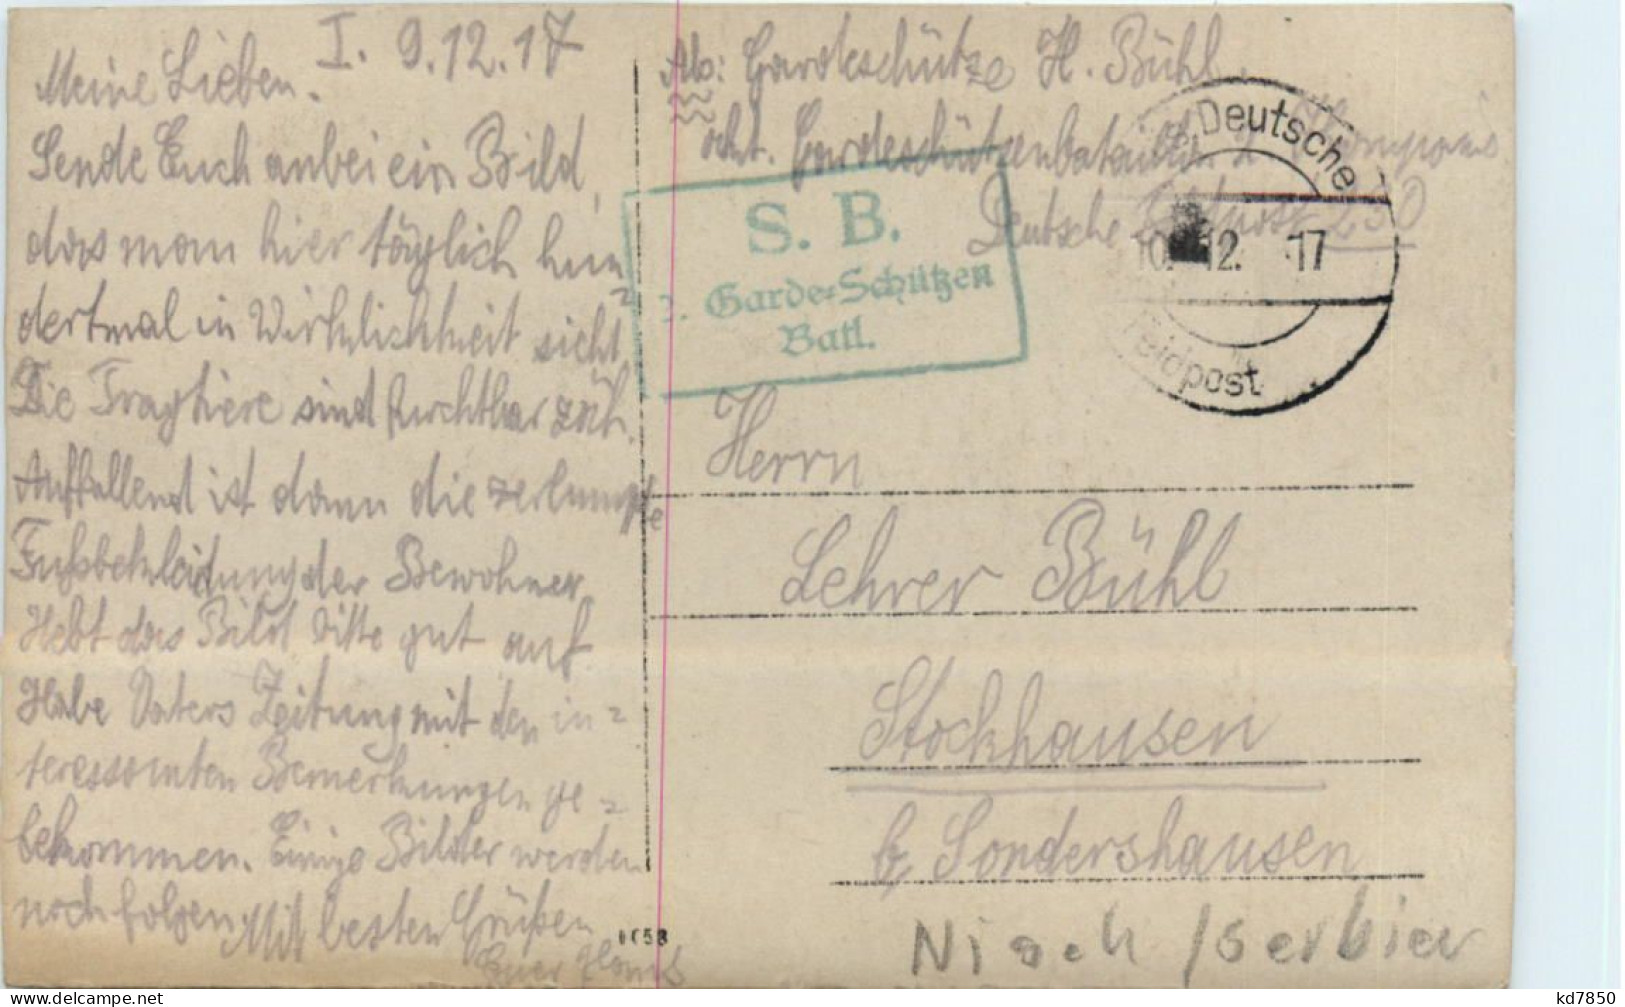 I. 9.12.17
Meine Lieben.
Sende Euch anbei ein Bild,
das man hier täglich hun=
dertmal in Wirklichkeit sieht.
Die Tragtiere sind furchtbar zäh.
Auffallend ist dann die zerlumpte
Fußbekleidung der Bewohner.
Hebt das Bild bitte gut auf.
Habe Vaters Zeitung mit den in=
teressanten Bemerkungen ge=
bekommen. Einige Bilder werden
noch folgen. Mit besten Grüßen
Euer Hans
Ab: Gardeschütze H. Bühl.
Gardeschützenbataillon 2. Kompanie
Deutsche Feldpost 230
S. B.
Garde-Schützen
Batl.
Deutsche
10. 12. 17
Feldpost
Herrn
Lehrer Bühl
Stockhausen
b/ Sondershausen
Nisch / Serbien
delcampe.net
kd7850